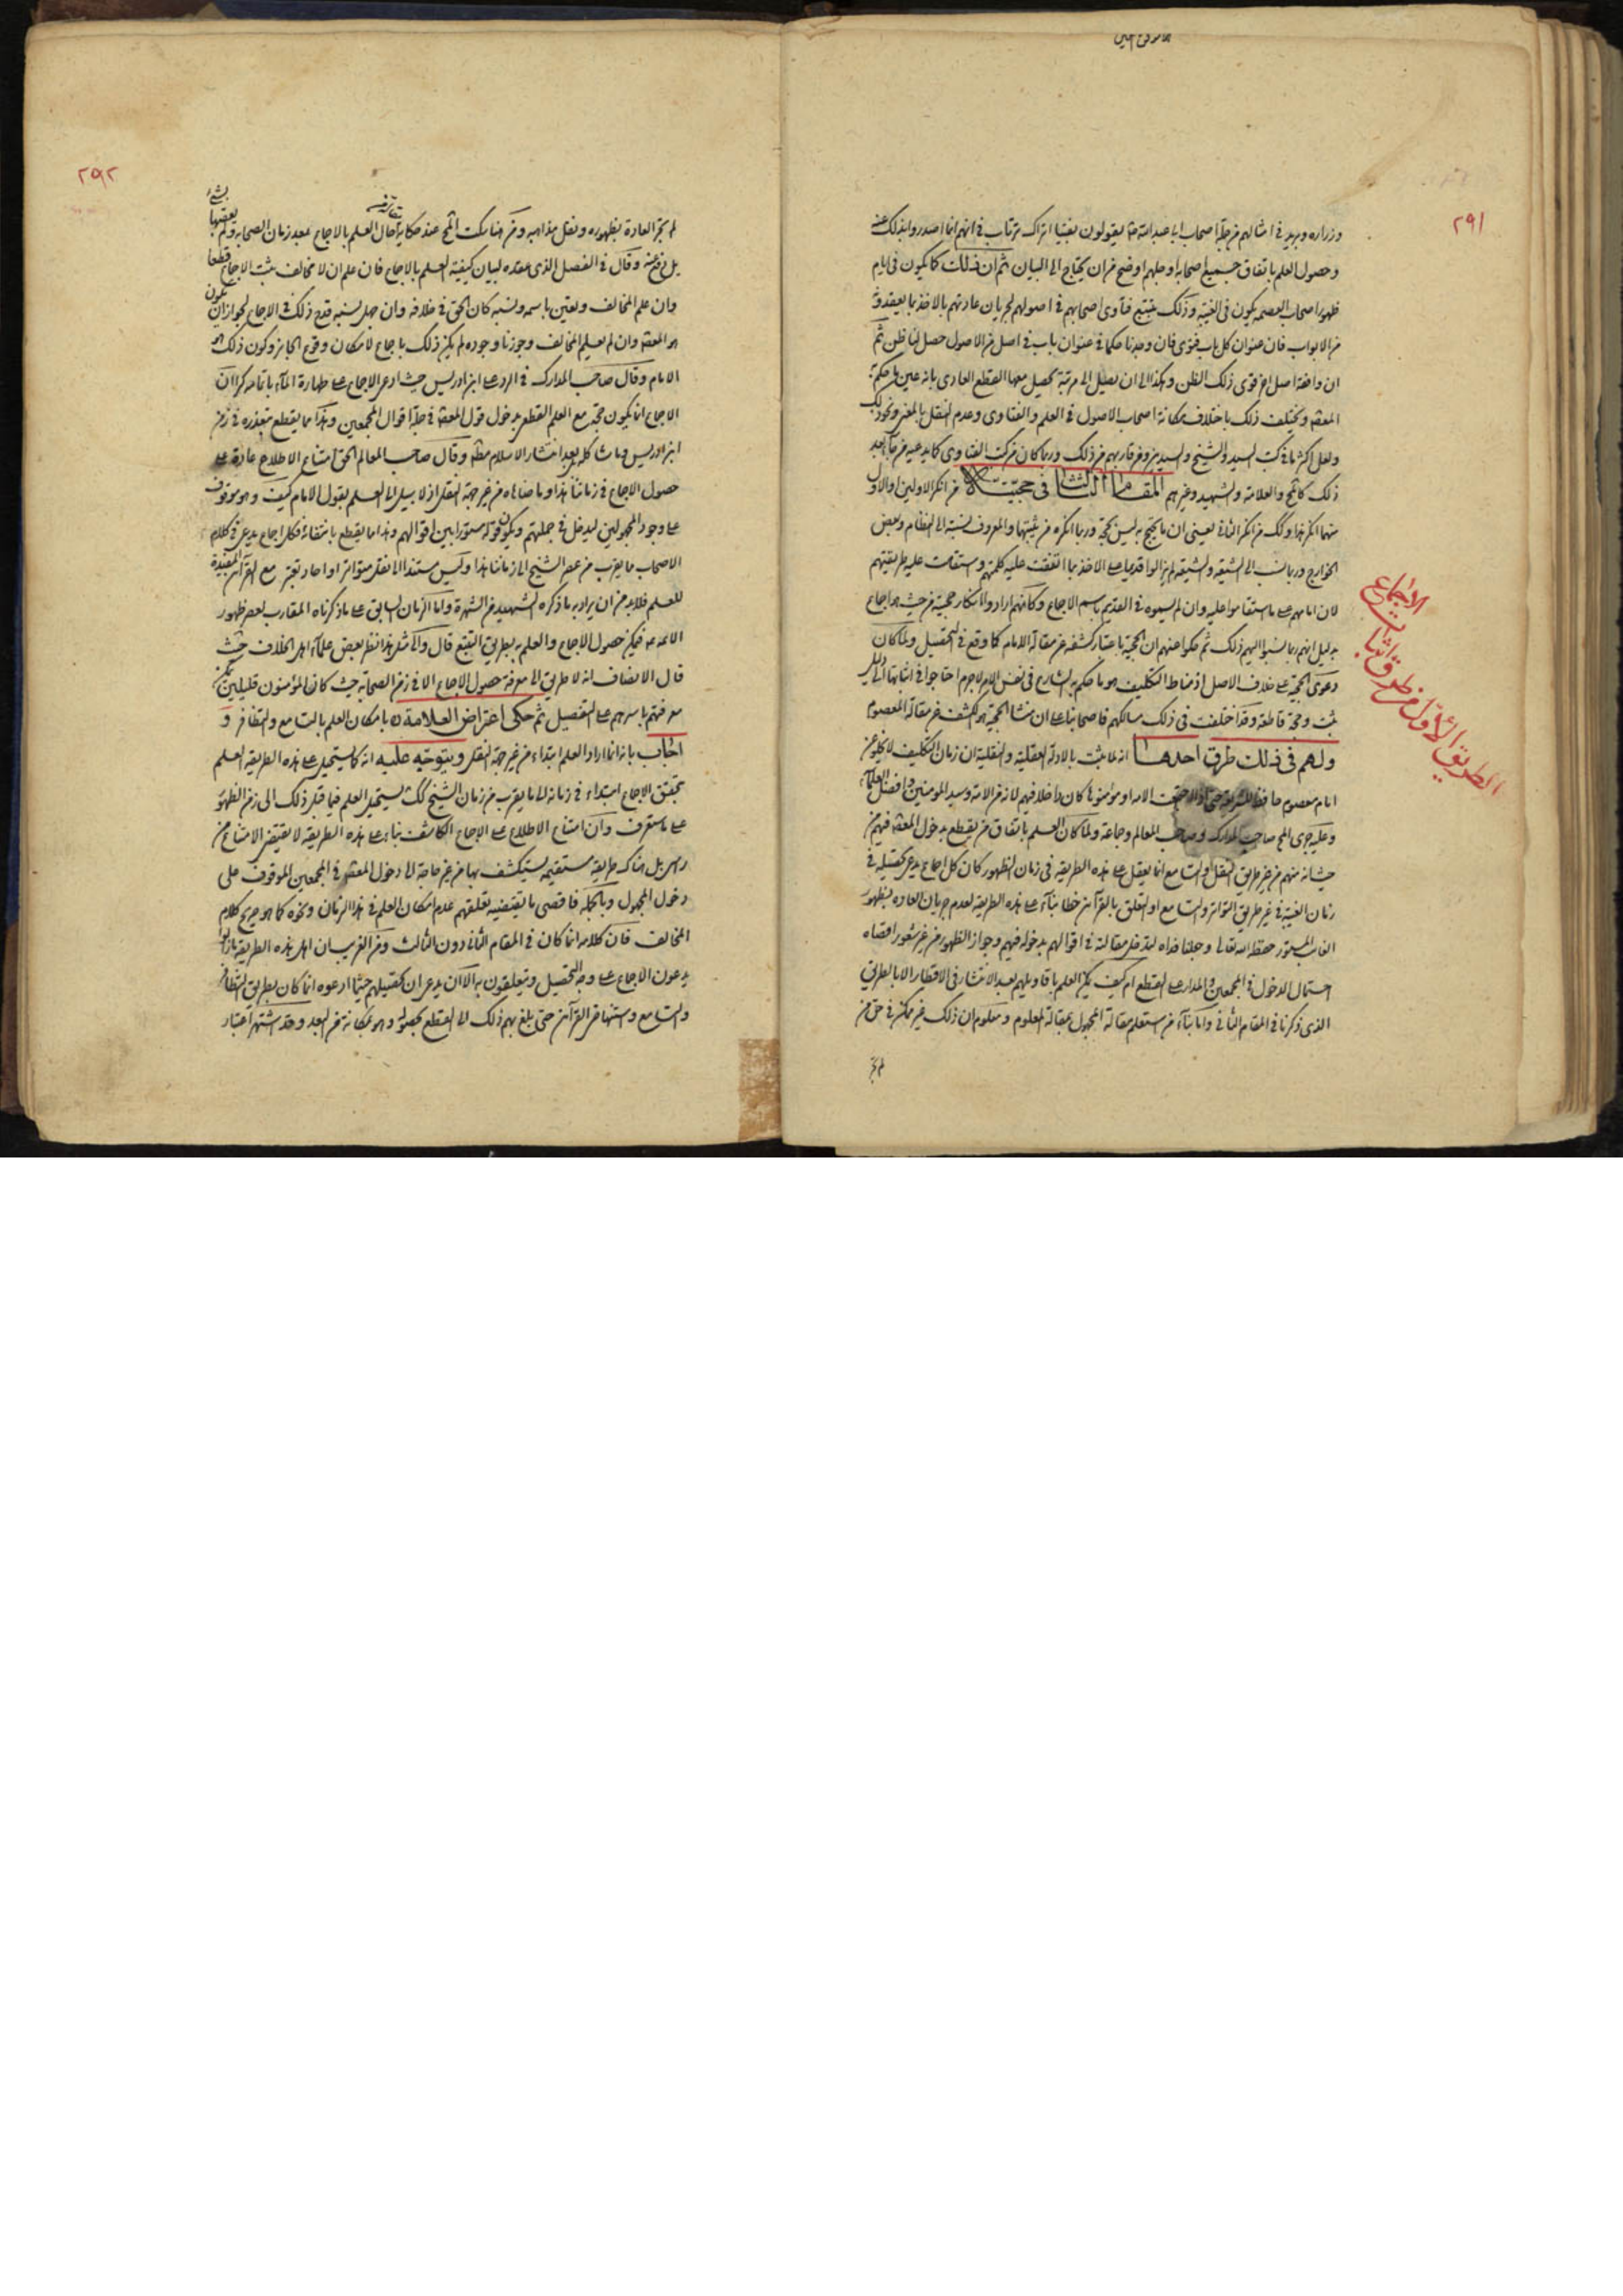 ٢٩١
وزراره وبريد في امثالهم من جلة اصحاب ابا عبد الله يقولون بفتيا اتراك ترتاب في انهم انما اصدروا بذلك عنه
وحصول العلم باتفاق جميع اصحابه او جلهم اوضح من ان يحتاج الى البيان ثم ان ذلك كما يكون في ايام
ظهور اصحاب العصمه يكون في الغيبة وذلك بتتبع فتاوى اصحابهم في اصولهم لجريان عادتهم بالاخذ بما يعقدونه
من الابواب فان عنوان كل باب فتوى فان وجدنا حكما في عنوان باب في اصل من الاصول حصل لنا ظن ثم
ان وافقه اصل اخر قوى ذلك الظن وهكذا الى ان يصل الى مرتبة يحصل معها القطع العادى بانه عين ما حكم به
المعصوم ويختلف ذلك باختلاف مكانة اصحاب الاصول في العلم والفتاوى وعدم النقل بالمعنى ونحو ذلك
ولعل اكثر ما في كتب السيد والشيخ والسيدين ومن قاربهم من ذلك وربما كان من كتب الفتاوى كما يدعيه من جاء بعد
ذلك كالمحقق والعلامة والشهيد وغيرهم المقام الثالث في حجيته من انكر الاولين او الاول
منهما انكر هذا وكذلك من انكر الثاني يعني ان ما يحتج به ليس بحجة وربما انكره من يثبتهما والمعروف نسبته الى النظام وبعض
الخوارج وربما نسب الى الشيعة والشيعة لم يزالوا قديما على الاخذ بما اتفقت عليه كلمتهم واستقامت عليه طريقتهم
لان امامهم على ما استقاموا عليه وان لم يسموه في القديم باسم الاجماع وكانهم ارادوا انكار حجيته من حيث هو اجماع
بدليل انهم ربما نسبوا اليهم ذلك ثم حكوا عنهم ان الحجية باعتبار كشفه عن مقالة الامام كما وقع في التحصيل ولما كان
دعوى الحجية على خلاف الاصل اذ مناط التكليف هو ما حكم به الشارع في نفس الامر لاجرم احتاجوا في اثباتها الى دليل
مثبت وحجة قاطعة وقد اختلفت في ذلك مسالكهم فاصحابنا على ان منشأ الحجية هو الكشف عن مقالة المعصوم
ولهم في ذلك طرق احدها انه لما ثبت بالادلة العقلية والنقلية ان زمان التكليف لا يخلو عن
امام معصوم حافظ للشريعة حتى اذا اجتمعت الامة او مؤمنوها كان داخلا فيهم لانه من الامة وسيد المومنين وافضل العلماء
وعليه جرى المحقق صاحب المدارك وصاحب المعالم وجماعة ولما كان العلم باتفاق من يقطع بدخول المعصوم فيهم من
حيث انه منهم من غير طريق النقل والتسامع انما يعقل على هذه الطريقة في زمان الظهور كان كل اجماع يدعى تحصيله في
زمان الغيبة في غير طريق التواتر والتسامع او التعلق بالقرائن خطأ بناء على هذه الطريقة لعدم جريان العادة بظهور
الغائب المستور حفظه الله تعالى وجعلنا فداه ليدخل مقالته في اقوالهم بدخوله فيهم وجواز الظهور من غير شعور اقصاه
احتمال الدخول في المجمعين والمدار على القطع ام كيف يمكن العلم باقاويلهم بعد الانتشار في الاقطار الا بالطريق
الذى ذكرنا في المقام الثاني واما بناء من استعلم مقالة المجهول بمقالة المعلوم ومعلوم ان ذلك غير ممكن في حق من
لم يجر
الطريق الأول من طرق اثبات
الاجماع
٢٩٢
لم يجر العادة بظهوره ونقل مذاهبه ومن هنا سكت المحقق عند حكاية احال العلم بالاجماع بعد زمان الصحابه ولم
بل رضى عنه وقال في الفصل الذى عقده لبيان كيفية العلم بالاجماع فان علم ان لا مخالف ثبت الاجماع قطعا
وان علم المخالف وتعين باسمه ونسبه كان الحق في خلافه وان جهل نسبه قدح ذلك في الاجماع لجواز ان يكون
هو المعصوم وان لم نعلم المخالف وجوزنا وجوده لم يكن ذلك باجماع لامكان وقوع الجائز وكون ذلك هو
الامام وقال صاحب المدارك في الرد على ابن ادريس حيث ادعى الاجماع على طهارة الماء باتمامه كرا ان
الاجماع انما يكون حجة مع العلم القطعي بدخول قول المعصوم في جلة اقوال المجمعين وهذا مما يقطع بتعذره في زمن
ابن ادريس وما شاكله بعد انتشار الاسلام وقال صاحب المعالم الحق امتناع الاطلاع عادة على
حصول الاجماع في زماننا هذا وما ضاهاه من غير جهة النقل اذ لا سبيل الى العلم بقول الامام كيف وهو موقوف
على وجود المجهولين ليدخل في جملتهم ويكون قوله مستورا بين اقوالهم وهذا مما يقطع بانتفائه فكل اجماع يدعى في كلام
الاصحاب مما يقرب من عصر الشيخ الى زماننا هذا وليس مستندا الى نقل متواتر او احاد تعتبر مع القرائن المفيدة
للعلم فلابد من ان يراد به ما ذكره الشهيد من الشهرة واما الزمان السابق على ما ذكرناه المقارب لعصر ظهور
الائمة فيمكن حصول الاجماع والعلم به بطريق التتبع قال والى مثل هذا نظر بعض علماء اهل الخلاف حيث
قال الانصاف انه لا طريق الى معرفة حصول الاجماع الا في زمن الصحابه حيث كان المؤمنون قليلين يمكن
معرفتهم باسرهم على التفصيل ثم حكى اعتراض العلامة بامكان العلم بالتسامع والتظافر و
اجاب بانه انما اراد العلم ابتداء من غير جهة النقل ويتوجه عليه انه كما يستحيل على هذه الطريقة العلم
بتحقق الاجماع ابتداء في زمانه الى ما يقرب من زمان الشيخ كذلك يستحيل العلم فيما قبل ذلك الى زمن الظهور
على ما ستعرف وان امتناع الاطلاع على الاجماع الكاشف بناء على هذه الطريقة لا يقتضي الامتناع من
راس بل هناك طريقة مستقيمه يستكشف بها من غير حاجة الى دخول المعصوم في المجمعين الموقوف على
دخول المجهول وبالجملة فاقصى ما يقتضيه تعلقهم عدم امكان العلم في هذا الزمان ونحوه كما هو صريح كلام
المخالف فان كلامه انما كان في المقام الثاني دون الثالث ومن الغريب ان اهل هذه الطريقة مازالوا
يدعون الاجماع على وجه التحصيل ويتعلقون به الا ان يدعى ان تحصيلهم حيثما ادعوه انما كان بطريق التظافر
والتسامع واستنهاض القرائن حتى بلغ بهم ذلك الى القطع بحصوله وهو بمكانة من البعد وقد اشتهر اعتبار